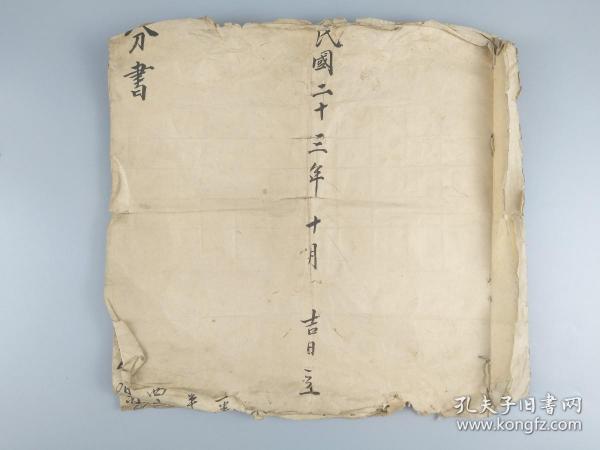 民國二十三年十月 吉日立
分書
孔夫子旧书网
www.kongfz.com